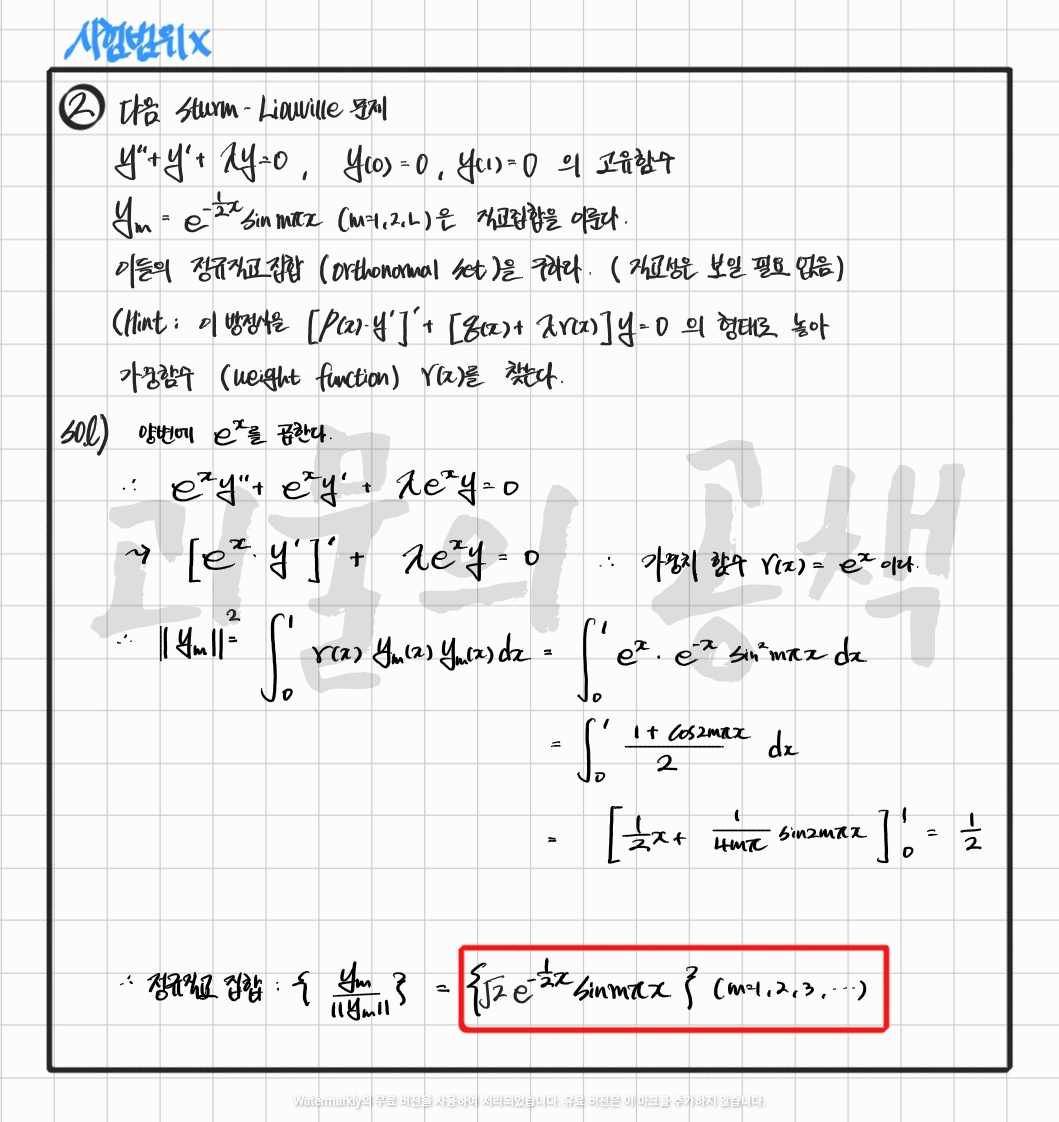 시험범위X
② 다음 Sturm-Liouville 문제
y''+y'+λy=0, y(0)=0, y(1)=0 의 고유함수
yₘ = e^{-½x} sin mπx (m=1,2,L)은 직교집합을 이룬다.
이들의 정규직교집합 (orthonormal set)을 구하라. (직교성은 보일 필요 없음)
(Hint: 이 방정식을 [p(x)·y']' + [q(x)+λr(x)]y=0 의 형태로 놓아
가중함수 (weight function) r(x)를 찾는다.
sol) 양변에 e^x를 곱한다.
∴ e^x y''+ e^x y' + λe^x y=0
→ [e^x·y']' + λe^x y = 0 ∴ 가중치 함수 r(x) = e^x 이다.
∴ ||yₘ||² = ∫₀¹ r(x) yₘ(x) yₘ(x) dx = ∫₀¹ e^x · e^{-x} sin²mπx dx
= ∫₀¹ (1+cos2mπx)/2 dx
= [½x + 1/(4mπ) sin2mπx]₀¹ = ½
∴ 정규직교 집합 : { yₘ/||yₘ|| } = {√2 e^{-½x} sin mπx } (m=1,2,3,⋯)
괴물의 공책
Watermarkly의 무료 버전을 사용하여 처리되었습니다. 유료 버전은 이 마크를 추가하지 않습니다.